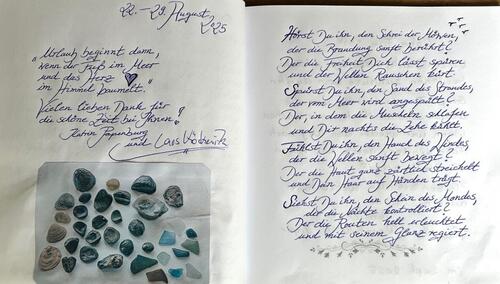 22.–29. August
2025
„Urlaub beginnt dann,
wenn der Fuß im Meer
und das Herz
im Himmel baumelt."
Vielen lieben Dank für
die schöne Zeit bei Ihnen!
Katrin Papenburg
und Lars
Hörst Du ihn, den Schrei der Möwen,
der die Brandung sanft berührt?
Der die Freiheit Dich lässt spüren
und der Wellen Rauschen kürt.
Spürst Du ihn, den Sand des Strandes,
der vom Meer wird angespült?
Der, in dem die Muscheln schlafen
und Dir nachts die Zehe kühlt.
Fühlst Du ihn, den Hauch des Windes,
der die Wellen sanft bewegt?
Der die Haut ganz zärtlich streichelt
und Dein Haar auf Händen trägt.
Siehst Du ihn, den Schein des Mondes,
der die Nächte kontrolliert?
Der die Routen hell erleuchtet
und mit seinem Glanz regiert.